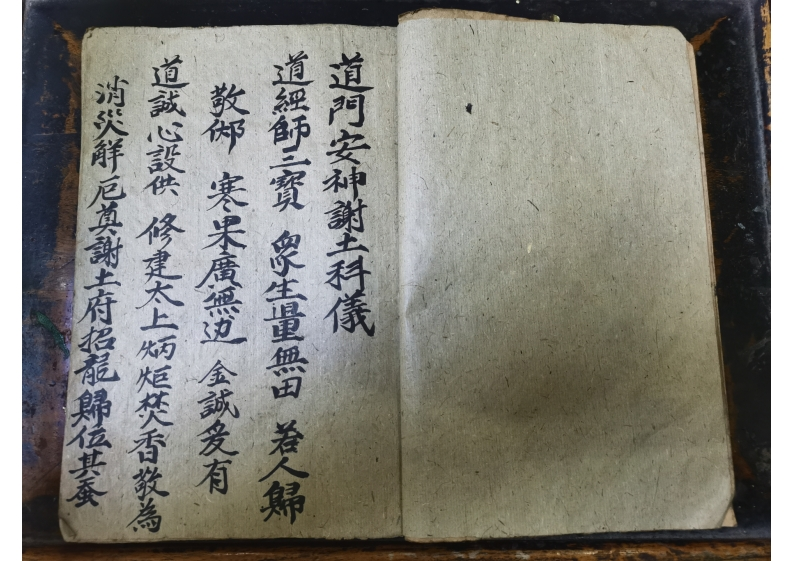 道門安神謝土科儀
道經師三寶 衆生量無田 若人歸
敬邺 寒果廣無边 金誠爰有
道誠心設供 修建太上炳炬焚香敬為
消災解厄奠謝土府招龍歸位其蚕